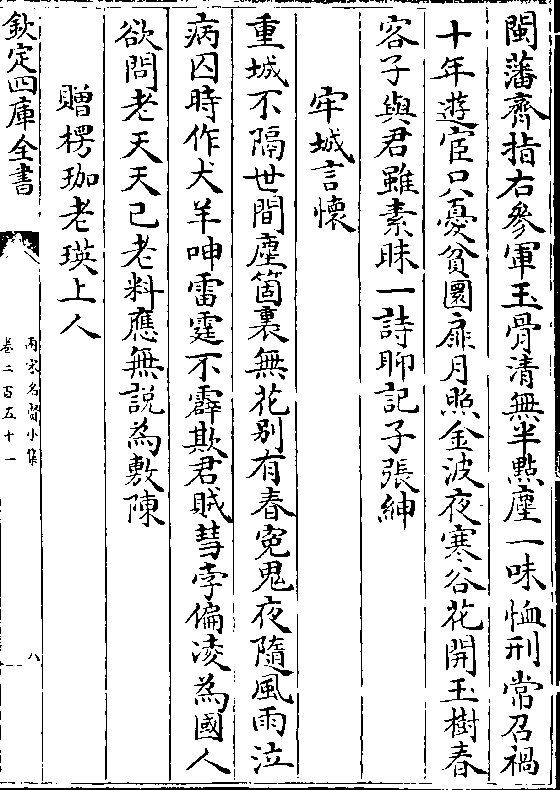 閩藩齊指右參軍玉骨清無半點塵一味恤刑常召禍
十年遊宦只憂貧圜扉月照金波夜寒谷花開玉樹春
容子與君雖素昧一詩聊記子張紳
牢城言懷
重城不隔世間塵箇裏無花别有春寃鬼夜隨風雨泣
病囚時作犬羊呻雷霆不霹欺君賊彗孛偏凌為國人
欲問老天天已老料應無說為敷陳
贈楞珈老瑛上人
欽定四庫全書
兩宋名賢小集
卷二百五十一
八